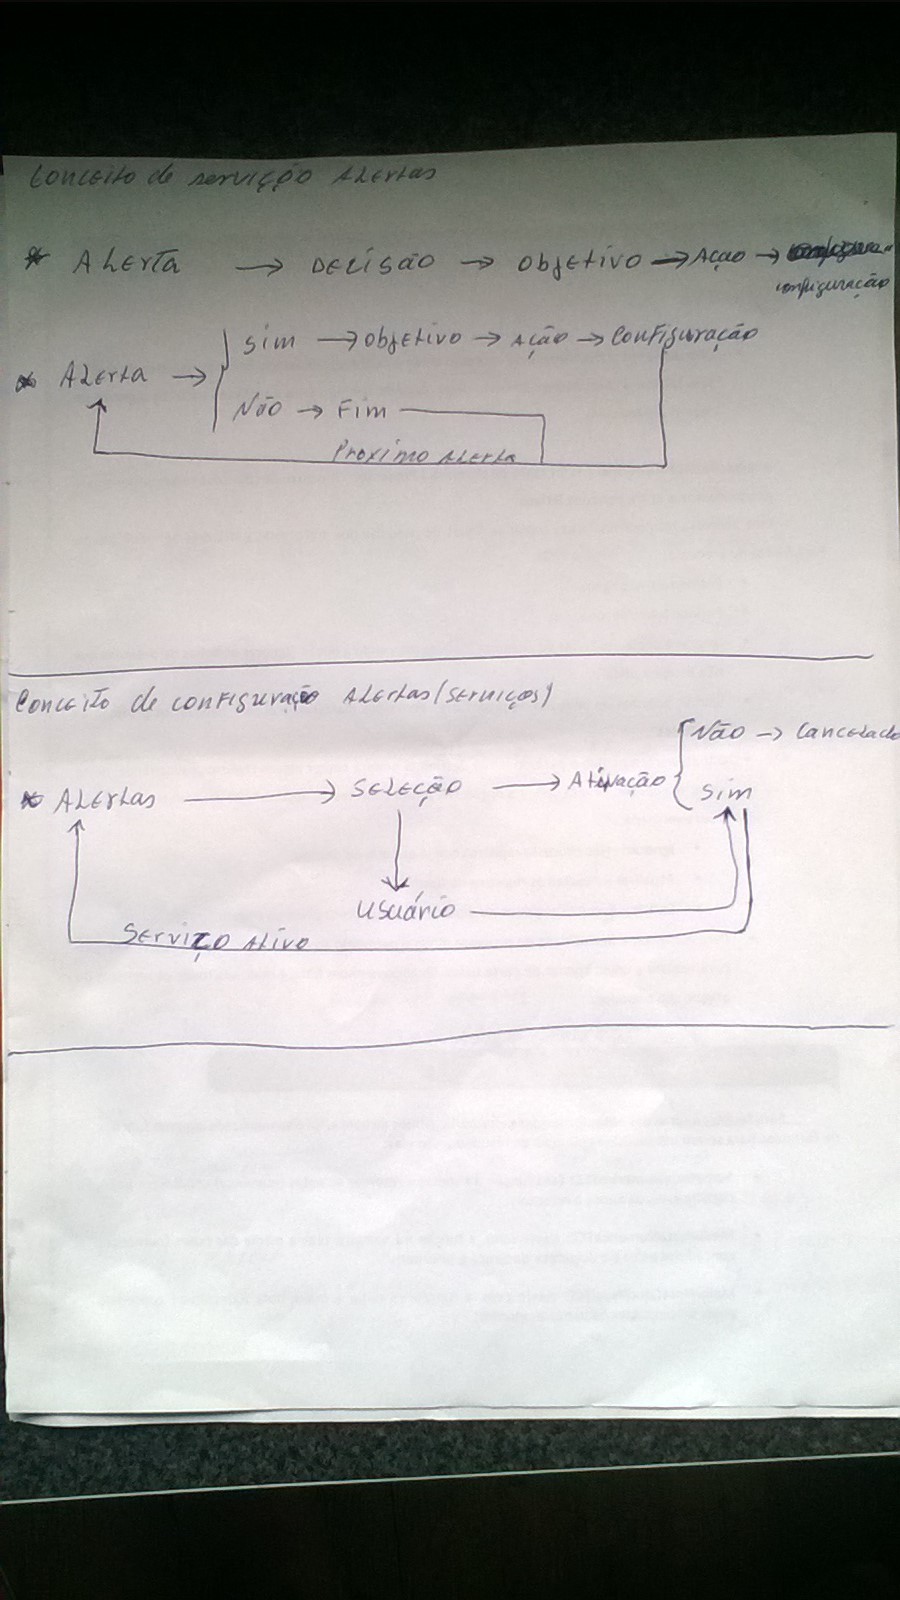 Conceito de servição Alertas
* Alerta → Decisão → Objetivo → Ação →
configuração
Sim → Objetivo → Ação → Configuração
* Alerta →
Não → Fim
Proximo Alerta
Conceito de configuração Alertas (serviços)
Não → Cancelado
* Alertas → Seleção → Ativação
Sim
Usuário
Serviço Ativo